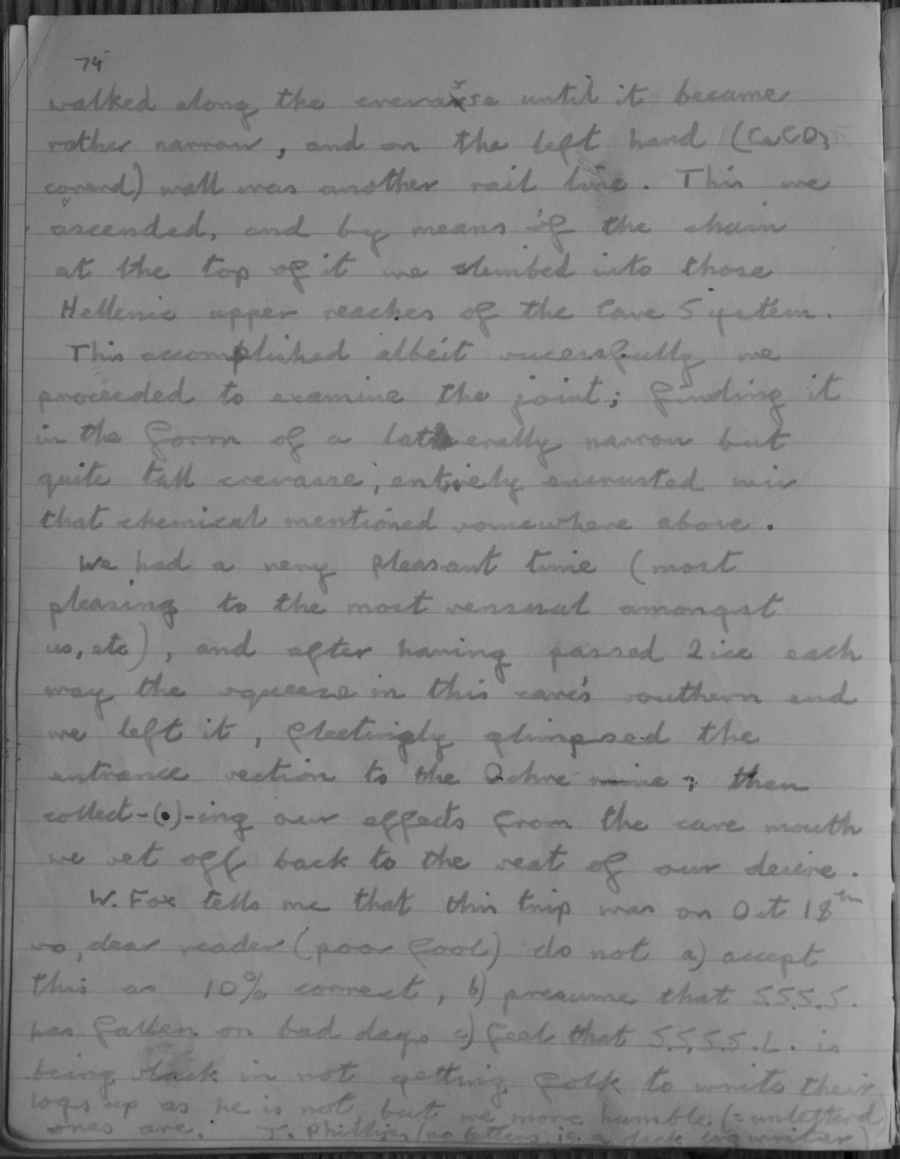 74
walked along the crevasse until it became
rather narrow, and on the left hand (CaCO3
covered) wall was another rail line. This we
ascended, and by means of the chain
at the top of it we climbed into those
Hellenic upper reaches of the Cave System.
This accomplished albeit sucessfully we
proceeded to examine the joint; finding it
in the form of a laterally narrow but
quite tall crevasse, entirely encrusted wiv
that chemical mentioned somewhere above.
We had a very pleasant time (most
pleasing to the most sensual amongst
us, etc), and after having passed 2ice each
way the squeeze in this cave's southern end
we left it, fleetingly glimpsed the
entrance section to the Ochre mine; then
collect-(•)-ing our effects from the cave mouth
we set off back to the seat of our desire.
W. Fox tells me that this trip was on Oct 18th
so, dear reader (poor fool) do not a) accept
this as 10% correct, b) presume that S.S.S.S.
has fallen on bad days c) feel that S.S.S.S.L. is
being slack in not getting folk to write their
logs up as he is not, but we more humble (= unlettered)
ones are. T. Phillips (no letters is a slack log writer)